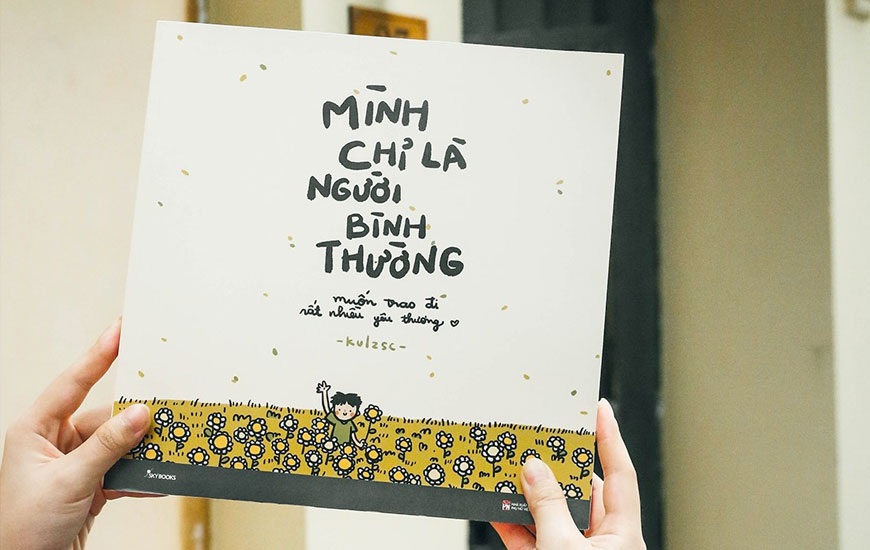 MÌNH
CHỈ LÀ
NGƯỜI
BÌNH
THƯỜNG
muốn trao đi
rất nhiều yêu thương ♡
-kulzsc-
SKYBOOKS